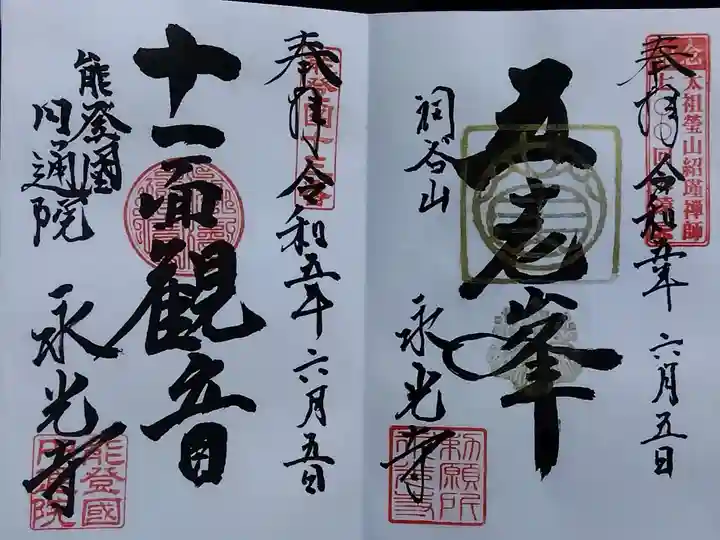 奉拝 令和五年 六月五日
太祖瑩山紹瑾禅師
五老峯
洞谷山
永光寺
勅願所
永光寺
奉拝 令和五年 六月五日
十一面観音
能登國
円通院
永光寺
能登國
円通院